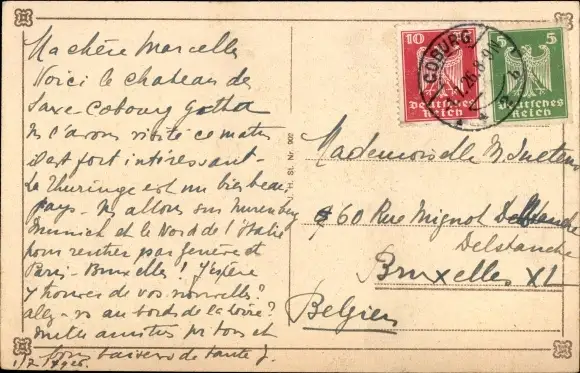 Ma chère Marcelle
Voici le chateau de
Saxe-Cobourg Gotha
Ns l'avons visité ce matin
il est fort intéressant-
La Thuringe est un bien beau
pays- Ns allons sur Nurenberg
Munich et le Nord de l'Italie
pour rentrer par Genève et
Paris- Bruxelles! J'espère
y trouver de vos nouvelles?
allez-vs au bords de la Loire?
mille amitiés pr tous et
bons baisers de tante J.
1/7 1926.
H. St. Nr. 902
10
Deutsches
Reich
5
5
Deutsches
Reich
COBURG
Mademoiselle M
60 Rue Mignot Delstanche
Delstanche
Bruxelles XL
Belgien